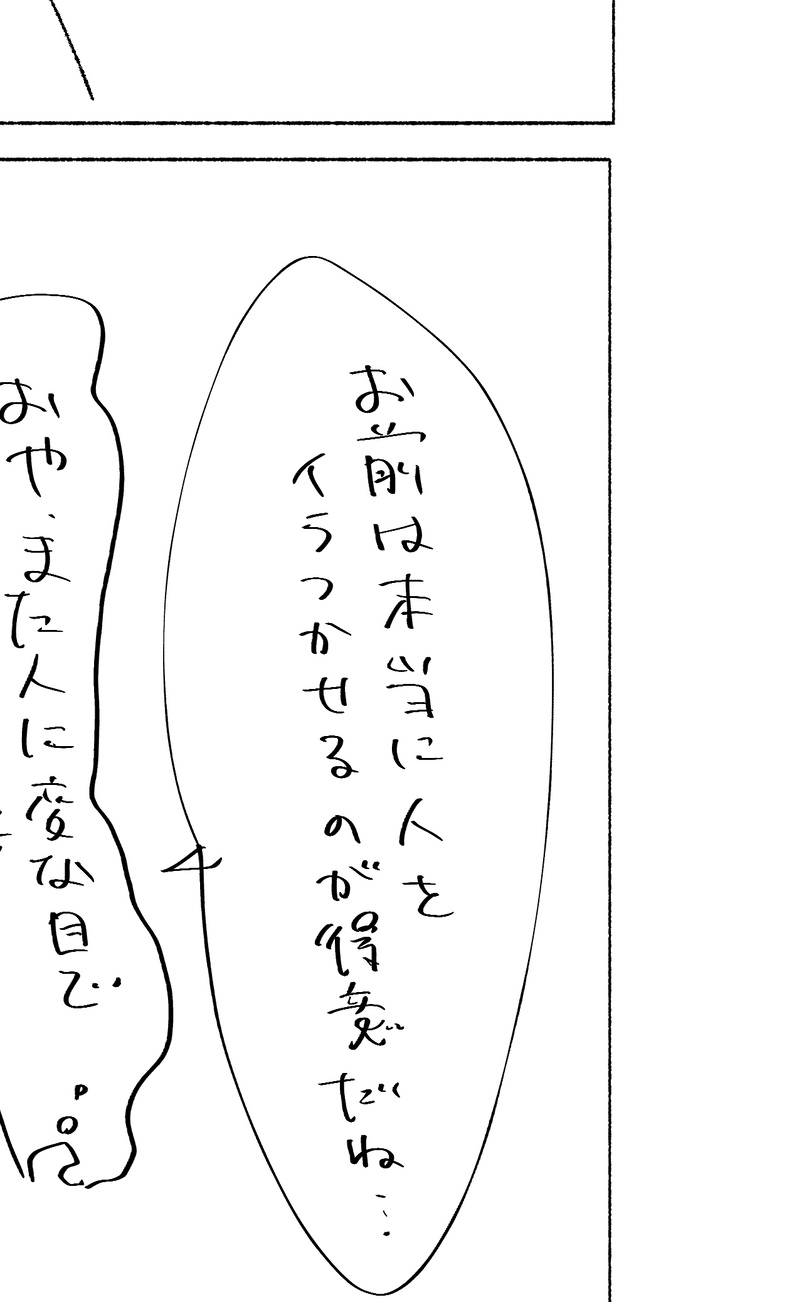 お前は本当に人を
イラつかせるのが得意だね…
おや、また人に変な目で